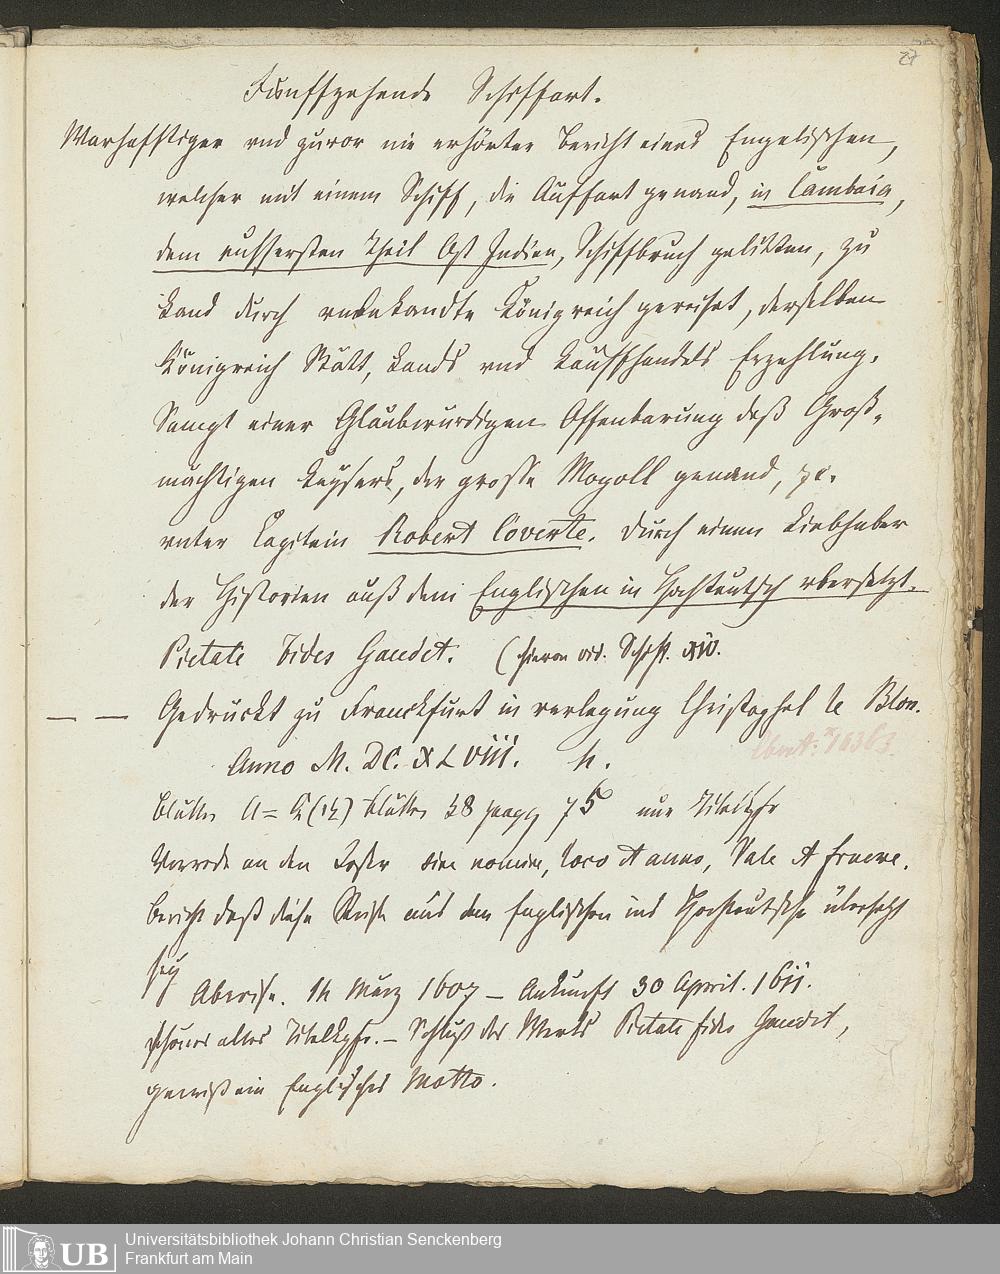 27
Funffzehende Schiffart.
Warhafftiger vnd zuvor nie erhörter Bericht eines Engelischen,
welcher mit einem Schiff, die Auffart genand, in Cambaia,
dem eussersten Theil Ost Indien, Schiffbruch gelitten, zu
Land durch vnbekandte Königreich gereiset, derselben
Königreich Stätt, Lands vnd Kauffhandels Erzehlung.
Sampt einer Glaubwurdigen Offenbarung deß Groß-
mächtigen Keysers, der grosse Mogoll genand, ꝛc.
vnter Capitein Robert Coverte. Durch einen Liebhaber
der Historien auß dem Englischen in Hochteutsch vbersetzt.
Pietate Fides Gaudet. (hievon vid. Schiff. XIV.
— — Gedruckt zu Franckfurt in verlegung Christophel le Blon.
Anno M. DC. XLVIII. 4.
Blätter A = (14) Blätter 58 pagg 75 nur Titelkpfr
Vorrede an den Leser sine nomine, loco et anno, Vale et fruere.
Bericht daß diese Reise aus dem Englischen ins Hochteutsche übersetzt
sey
Abreise. 14 März 1607 – Ankunft 30 April. 1611.
schönes altes Titelkpfr. – Schluß des Werks Pietate fides Gaudet,
gewiß ein Englisches Motto.
Universitätsbibliothek Johann Christian Senckenberg
UB Frankfurt am Main